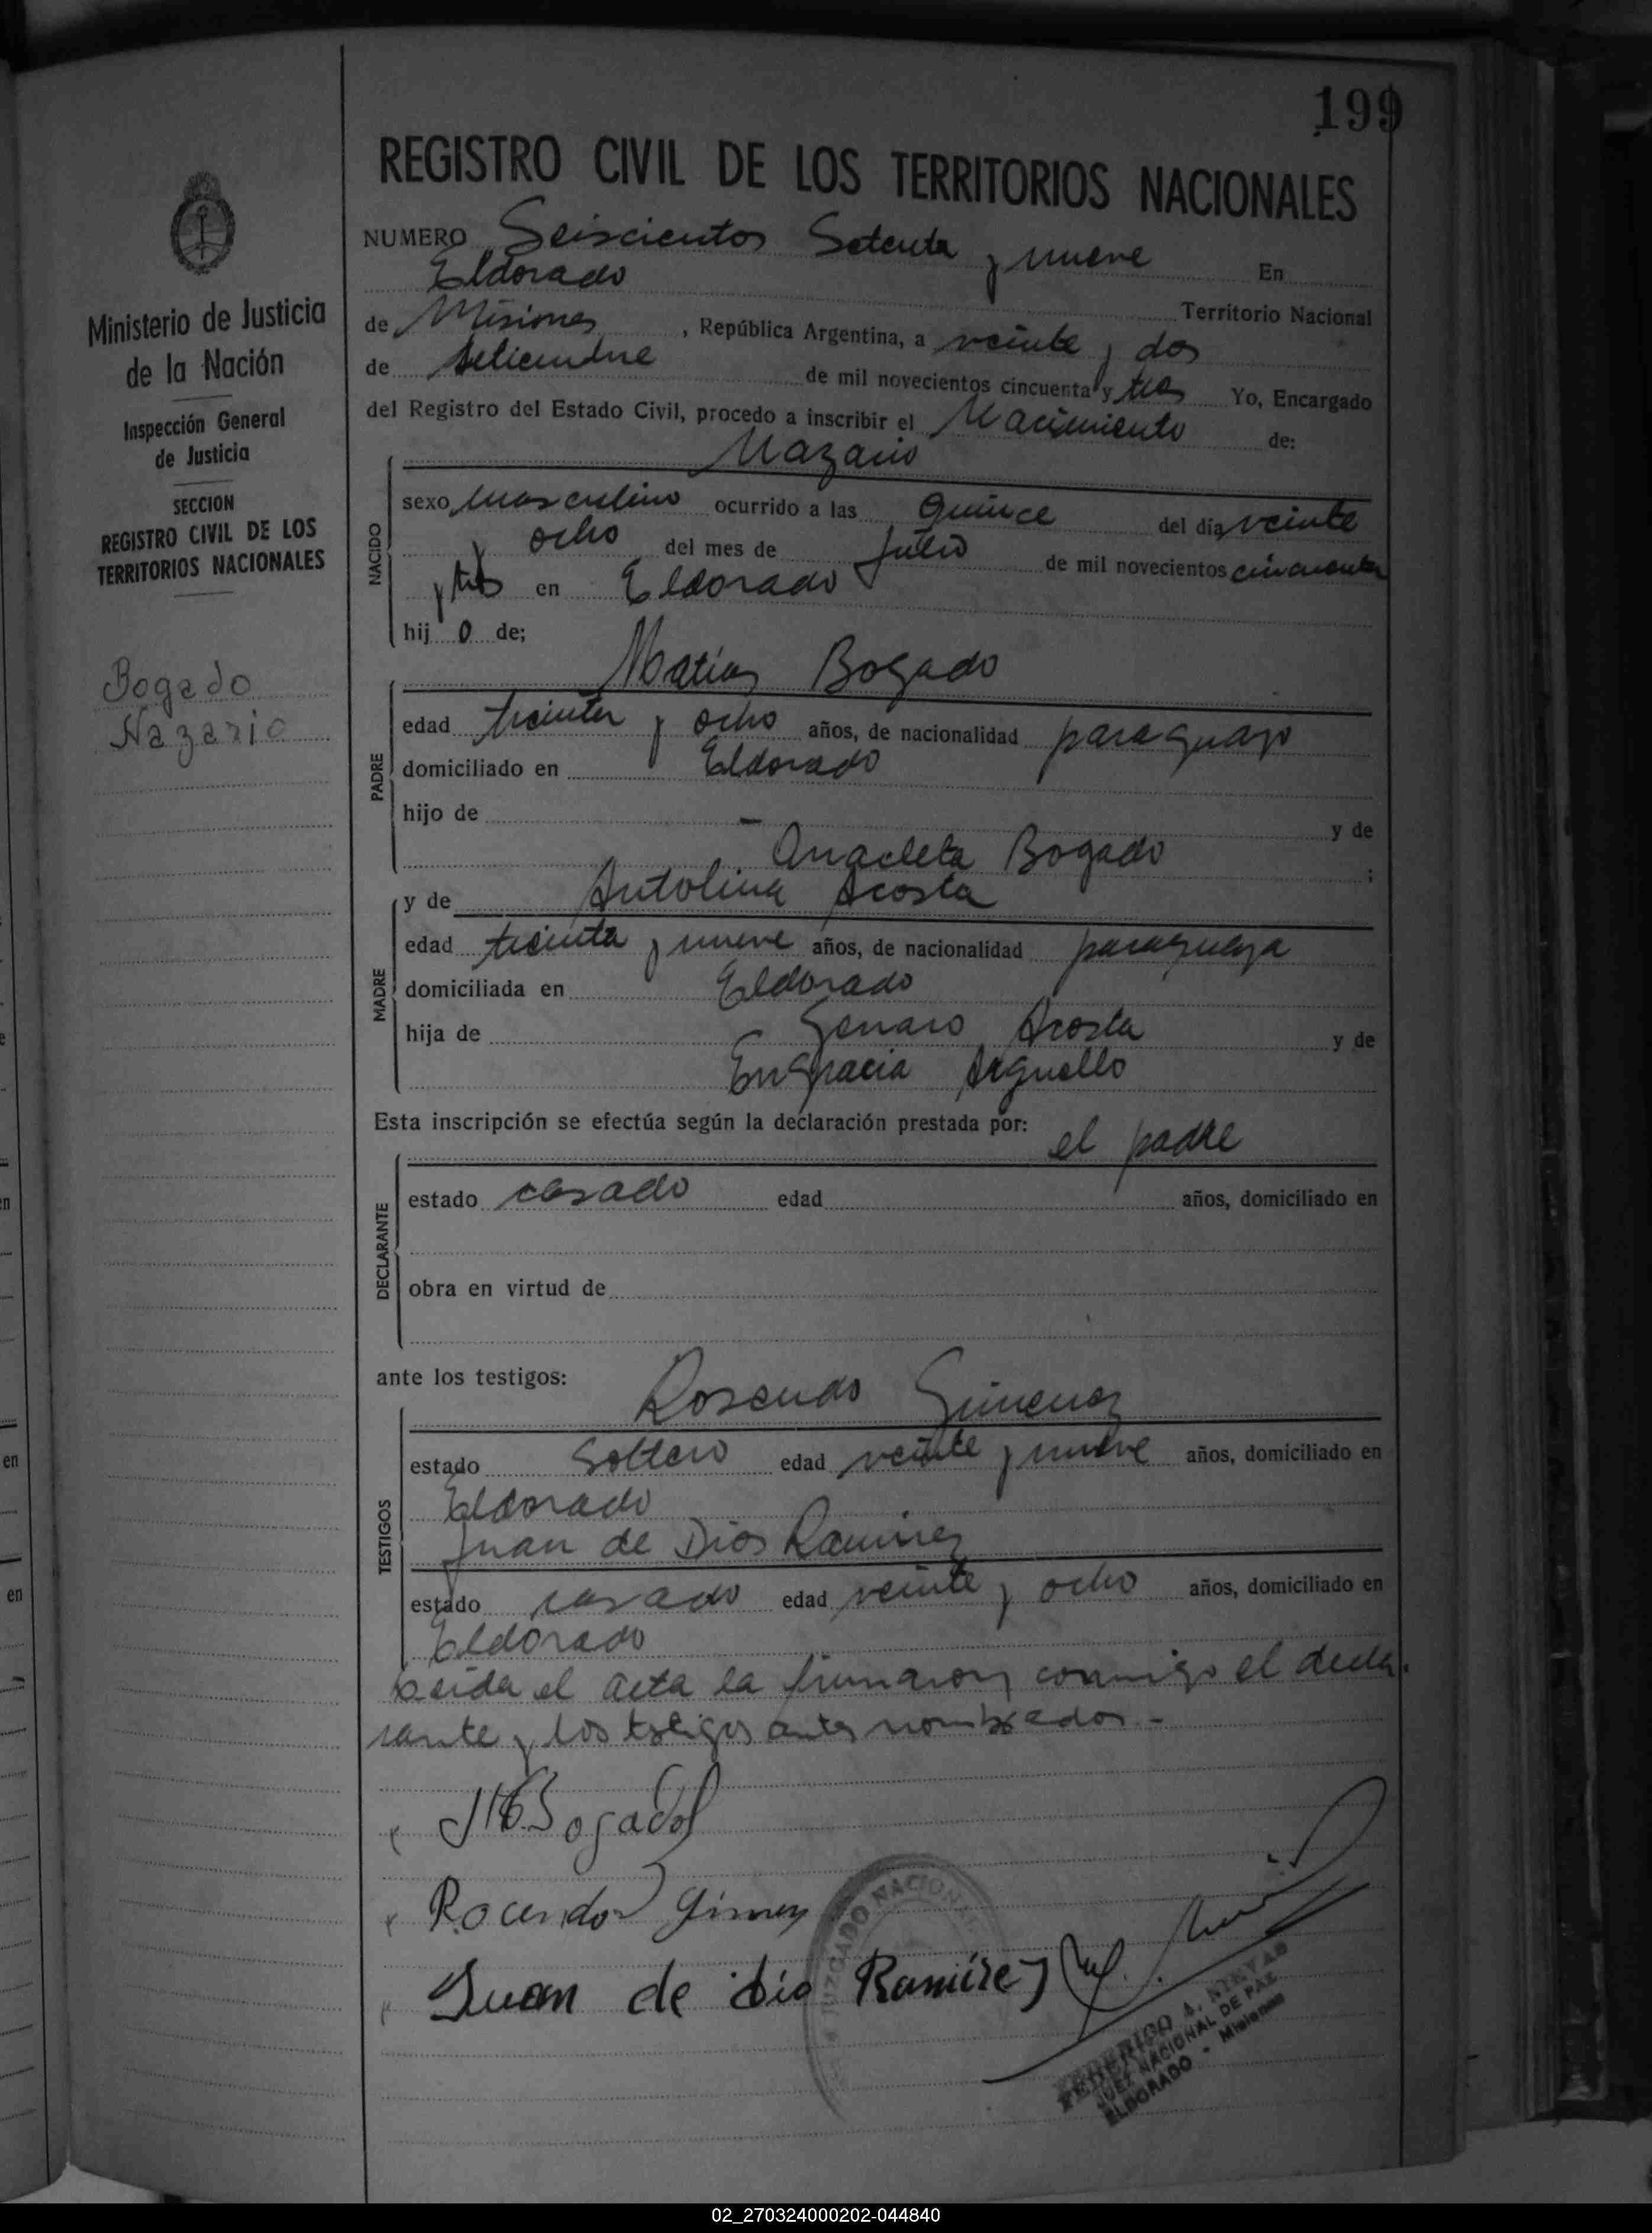 199
REGISTRO CIVIL DE LOS TERRITORIOS NACIONALES
Ministerio de Justicia
de la Nación
Inspección General
de Justicia
SECCION
REGISTRO CIVIL DE LOS
TERRITORIOS NACIONALES
Bogado
Nazario
NUMERO Seiscientos Setenta y nueve En
Eldorado Territorio Nacional
de Misiones, República Argentina, a veinte y dos
de Setiembre de mil novecientos cincuenta y tres Yo, Encargado
del Registro del Estado Civil, procedo a inscribir el Nacimiento de:
NACIDO
Nazario
sexo masculino ocurrido a las quince del día veinte
y ocho del mes de Julio de mil novecientos cincuenta
y tres en Eldorado
hij o de;
PADRE
Matías Bogado
edad treinta y ocho años, de nacionalidad paraguayo
domiciliado en Eldorado
hijo de — y de
Anacleta Bogado ;
MADRE
y de Antolina Acosta
edad treinta y nueve años, de nacionalidad paraguaya
domiciliada en Eldorado
hija de Genaro Acosta y de
Engracia Arguello
Esta inscripción se efectúa según la declaración prestada por: el padre
DECLARANTE
estado casado edad años, domiciliado en
obra en virtud de
ante los testigos: Rosendo Gimenez
TESTIGOS
estado Soltero edad veinte y nueve años, domiciliado en
Eldorado
Juan de Dios Ramirez
estado casado edad veinte y ocho años, domiciliado en
Eldorado
Leida el acta la firmaron conmigo el decla-
rante y los testigos antes nombrados.-
M Bogado
Rocendo Gimez
Juan de dio Ramirez
JUZGADO NACIONAL
FEDERICO A. NIEVAS
JUEZ NACIONAL DE PAZ
ELDORADO - Misiones
02_270324000202-044840